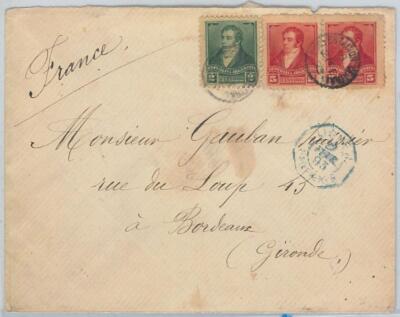 France.
2 2
5 5
5
Monsieur Gauban
rue du Loup 45
à Bordeaux
(Gironde.)